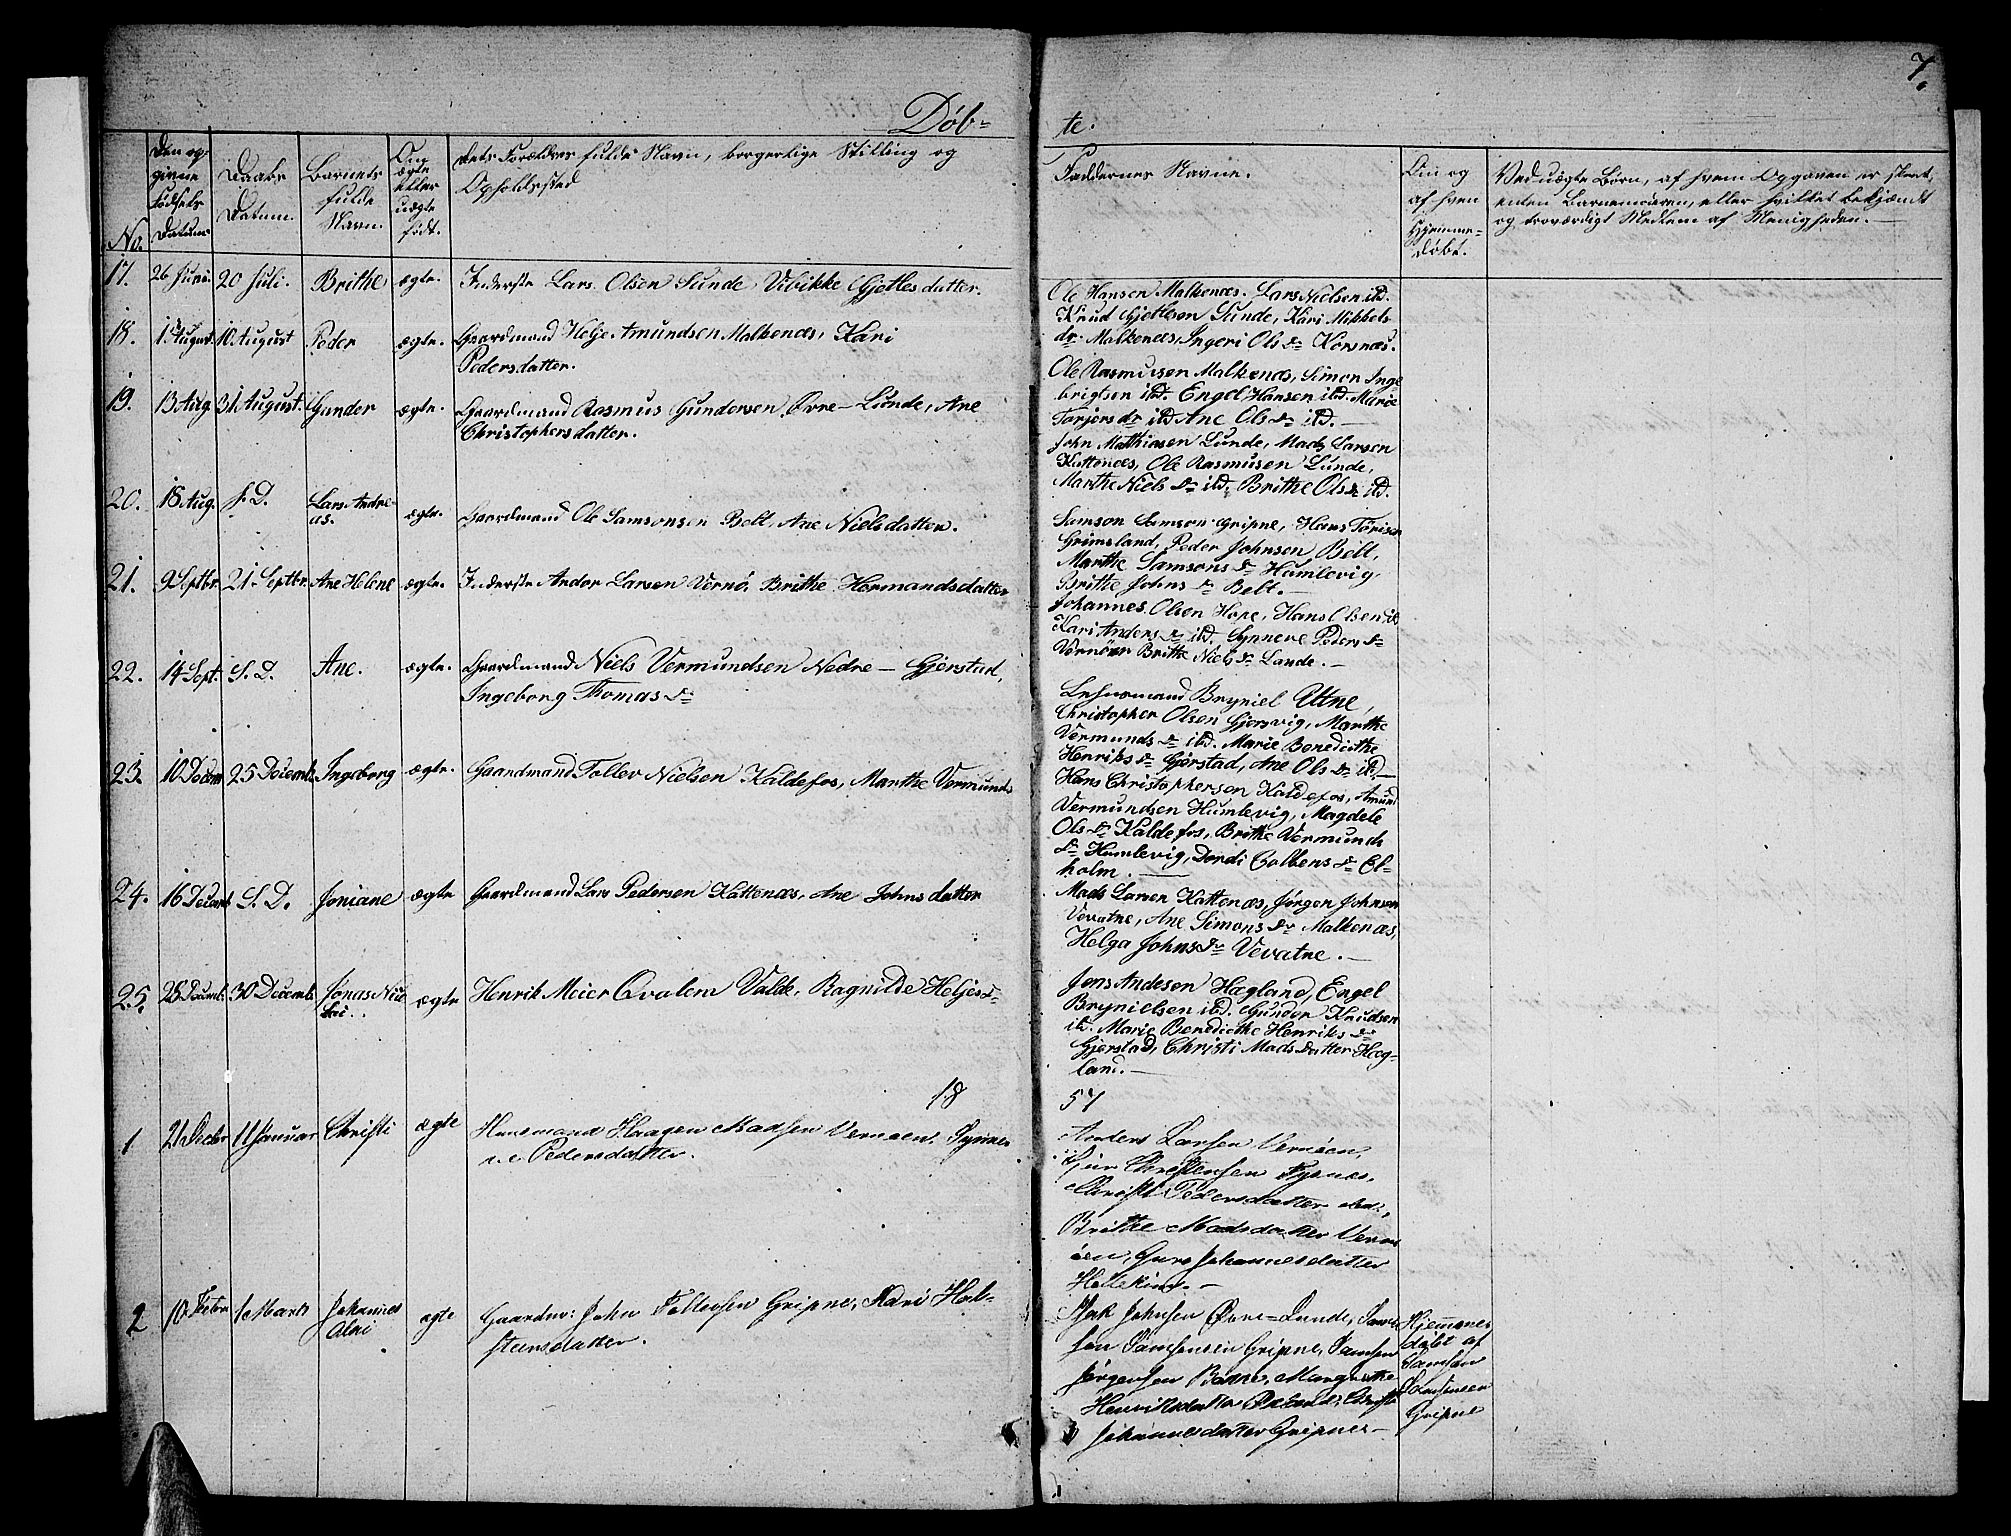 7.
Døb-
te.
No.
Den op-
givne
Fødsels
Datum.
Daabs
Datum.
Barnets
fulde
Navn.
Om
ægte
eller
uægte
født.
Dets Forældres fulde Navn, borgerlige Stilling og
Opholdssted
Faddernes Navne.
Om og
af hvem
Hjemme-
døbt.
Ved uægte Børn, af hvem Opgaven er skeet,
enten Barnemoderen, eller hvilket bekjændt
og troværdigt Medlem af Menigheden.
17. 26 Juni. 20 Juli. Brithe ægte. Inderste Lars Olsen Sunde, Vibikke Gjetlesdatter.
Ole Hansen Malkenæs. Lars Nielsen ibd.
Knud Gjetlesen Sunde, Kari Mikkels
dr. Malkenæs, Ingeri Ols Dr Korsnæs.
18. 1 August. 10 August Peder ægte. Gaardmand Helje Amundsen Malkenæs, Kari
Pedersdatter.
Ole Rasmusen Malkenæs, Simon Inge
brigtsen ibd. Engel Hansen ibd. Marie
Torjers dr ibd Ane Ols Dr ibd.
19. 13 Aug. 31 August. Gunder ægte. Gaardmand Rasmus Gundersen Øvre-Lunde, Ane
Christophersdatter.
John Mathiasen Lunde, Mads Larsen
Kattenæs, Ole Rasmusen Lunde,
Marthe Niels Dr ibd. Brithe Ols Dr ibd.
20. 18 Aug. s. D. Lars Andre-
as. ægte. Gaardmand Ole Samsonsen Belt, Ane Nielsdatter.
Samson Samson Gripne, Hans Tørisen
Grimsland, Peder Johnsen Belt,
Marthe Samsons Dr Humlevig,
Brithe Johns Dr Belt.
21. 9 Septbr. 21 Septbr. Ane Helene ægte. Inderste Ander Larsen Vernø, Brithe Hermandsdatter
Johannes Olsen Hope, Hans Olsen ib
Kari Anders Dr ibd. Synneve Peders Dr
Vernøen Brithe Niels Dr Lande.
22. 14 Sept. S. D. Ane. ægte. Gaardmand Niels Vermundsen Nedre-Gjerstad,
Ingeborg Thomas Dr
Lehnsmand Bryniel Utne,
Christopher Olsen Gjersvig, Marthe
Vermunds Dr ibd. Marie Benedicthe
Henriks Dr Gjerstad, Ane Ols Dr ibd.
23. 10 Decem 25 Decemb. Ingeborg ægte. Gaardmand Tollev Nielsen Kaldefos, Marthe Vermunds
Hans Christophersen Kaldefos, Amund
Vermundsen Humlevig, Magdele
Ols Dr Kaldefos, Brithe Vermunds
Dr Humlevig, Dordi Colbens Dr El-
holm.
24. 16 Decemb S. D. Joniane ægte Gaardmand Lars Pedersen Kattenæs, Ane Johnsdatter
Mads Larsen Kattenæs, Jørgen Johnsen
Vevatne, Ane Simons Dr Malkenæs,
Helga Johns Dr Vevatne.
25. 28 Decemb. 30 Decemb. Jonas Nic
lai. ægte Henrik Meier Qvalem Valde, Ragnilde Heljes Dr
Jens Andesen Hægland, Engel
Brynielsen ibd. Gunder Knudsen
ib. Marie Benedicthe Henriks Dr
Gjerstad, Christi Madsdatter Hæg-
land.
18
57
1 21 Decbr 11 Januar Christi ægte Huusmand Haagen Madsen Vernøen, Synne
ve Pedersdatter.
Anders Larsen Vernøen,
Christensen
Christi Pedersdatter
Brithe Madsdatter Vern
øen, Guro Johannesdatter
2 10 Febr 1 Marts Johannes
Olai ægte Gaardm: John Tollevsen Gripne, Kari Hal-
steinsdatter.
Johnsen Øvre-Lunde, Sam
son Samsonsen Gripne, Samson
Jørgensen Margrethe
Henriksdatter
Johannesdatter Gripne
Hjemme
døbt af
Samson
Samsonsen
Gripne